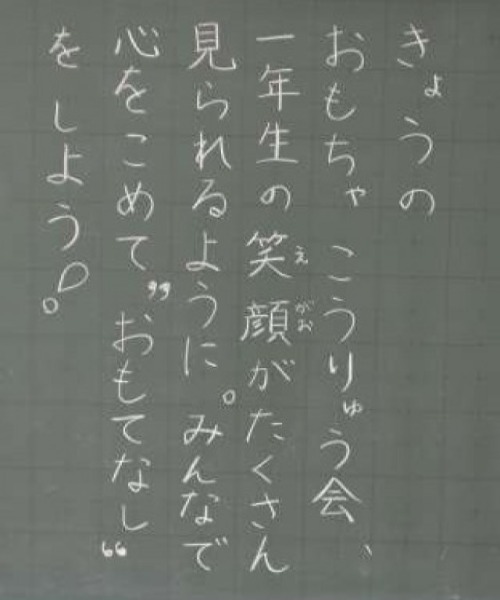 きょうの
おもちゃ こうりゅう会、
一年生の笑顔がたくさん
見られるように。みんなで
心をこめて"おもてなし"
をしよう!
え がお